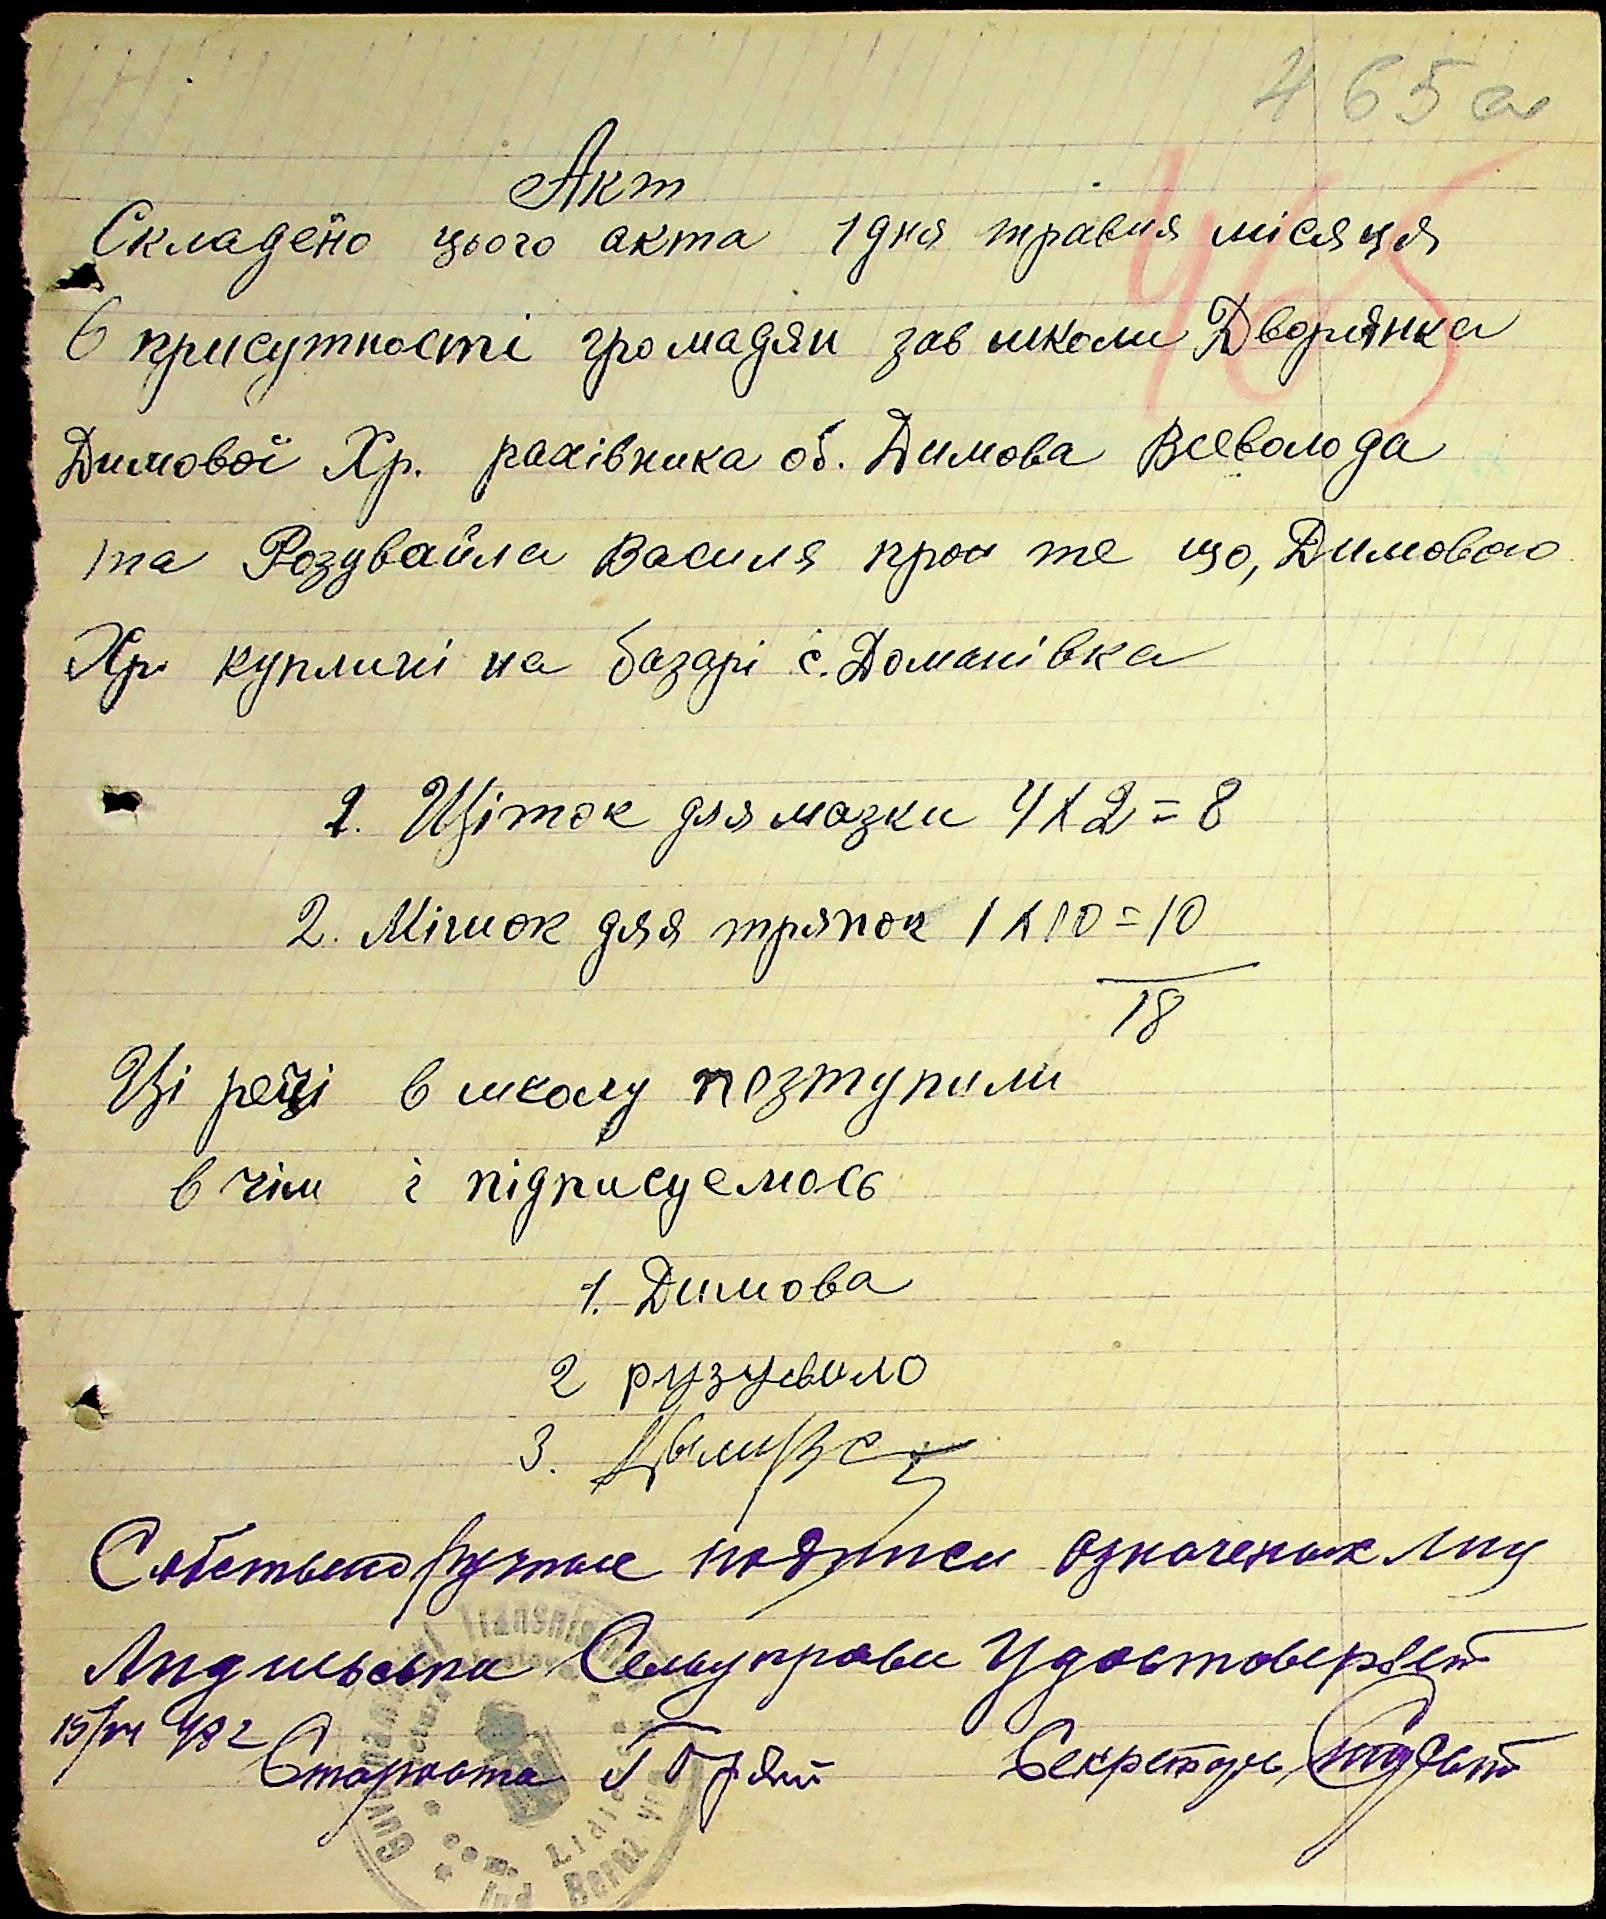 465а
465
Акт
Складено цього акта 1 дня травня місяця
в присутності громадян зав школи Дворянка
Димової Хр. рахівника об. Димова Всеволода
та Роздувайла Василя про те що, Димовою
Хр. купличі на базарі с. Доманівка
1. Щіток для мазки 4 х 2 = 8
2. Мішок для тряпок 1 х 10 = 10
18
Ці речі в школу позтупили
в чім і підписуемось
1. Димова
2 рузувило
3.
Собственоручные подписи означеных лиц
Сельуправи Удостоверяет
15/VI 1942
Староста
Секретарь
Guvernământul Transnistriei